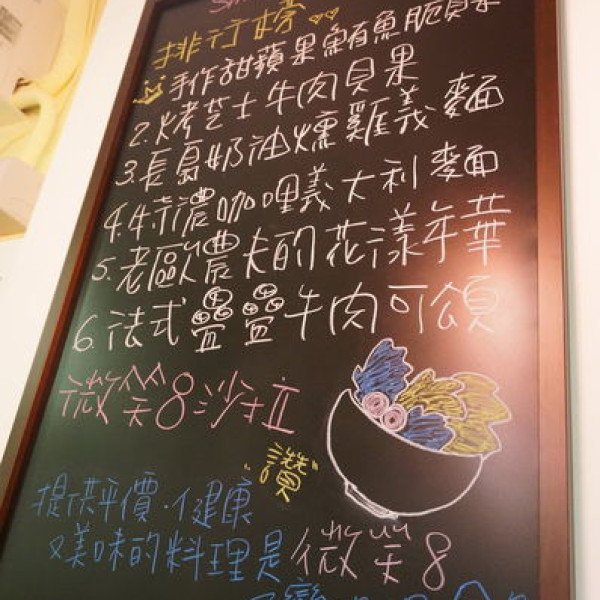 排行榜
手作甜蘋果鮪魚脆貝果
2.烤芝士牛肉貝果
3.長島奶油燻雞義麵
4.特濃咖哩義大利麵
5.老歐儂夫的花漾年華
6.法式疊疊牛肉可頌
微笑8沙拉
"讚"
提供平價·健康
又美味的料理是微笑8